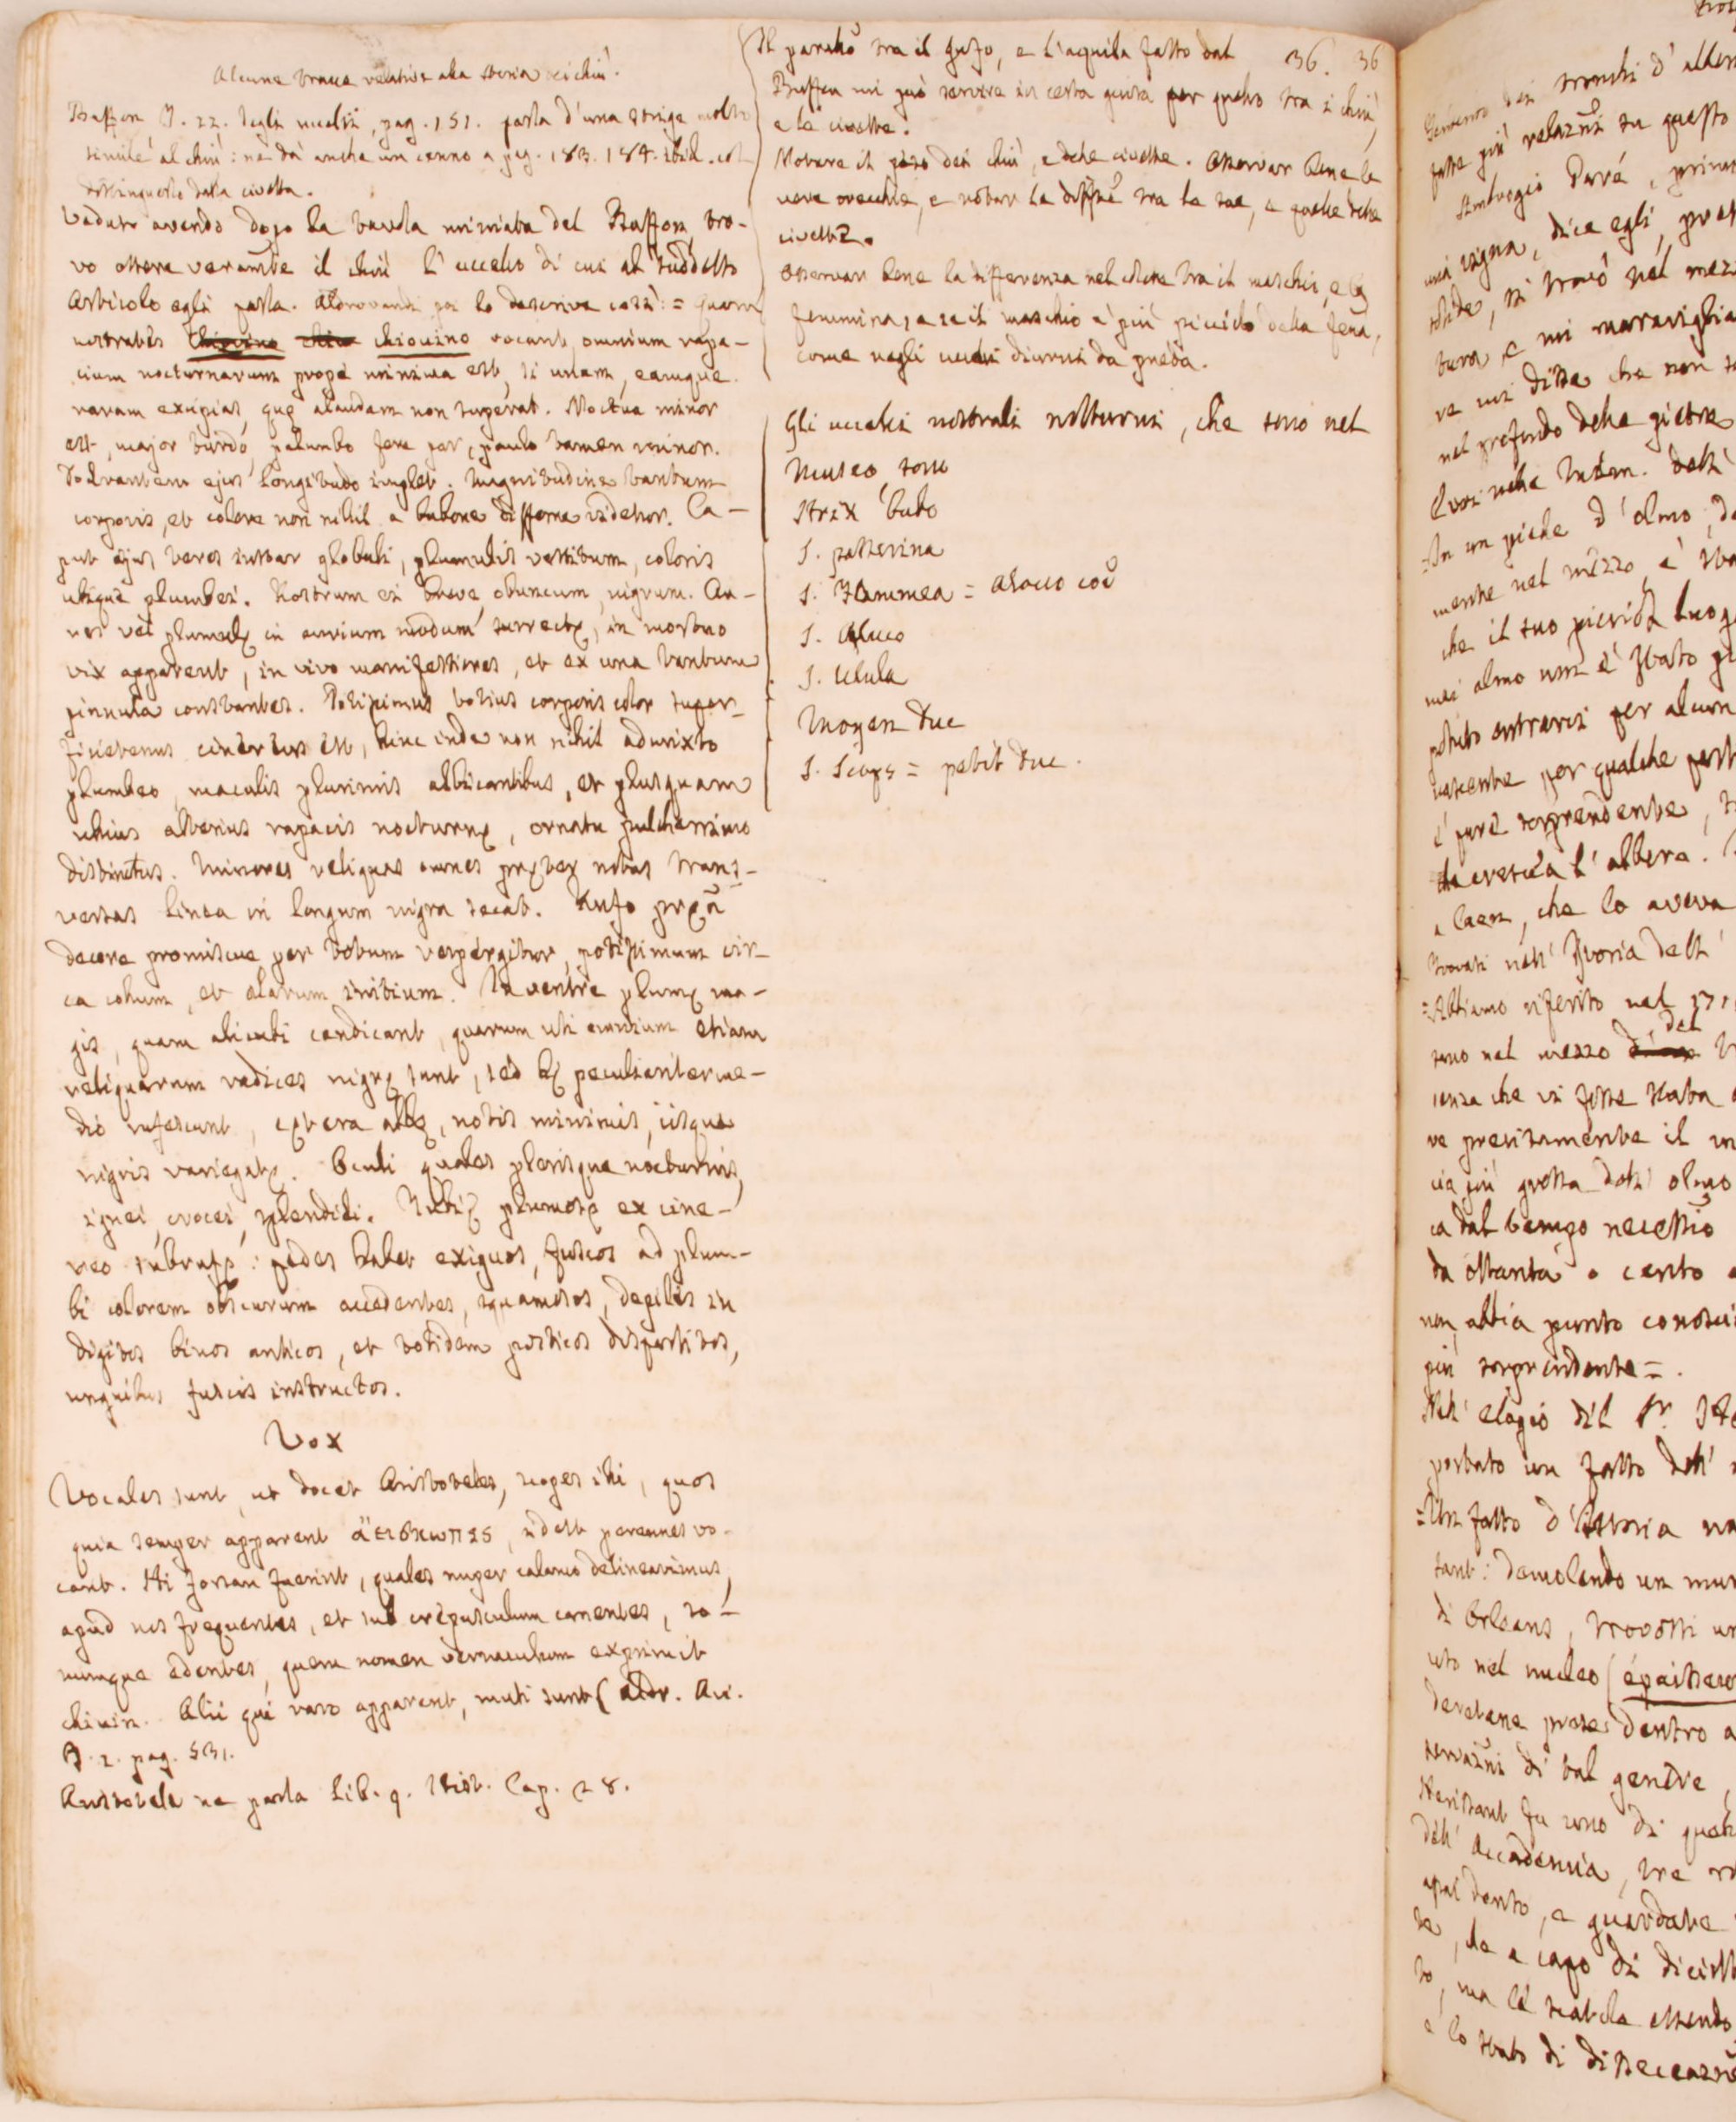 Alcune tracce relative alla storia dei chiù.
Buffon T. 22. degli uccelli, pag. 151. parla d'una strige molto
simile al chiù: ne dà anche un cenno a pag. 183. 184. ibid. col
distinguerlo dalla civetta.
Veduto avendo dopo la tavola miniata del Buffon, tro-
vo essere veramte il chiù l'uccello di cui al suddetto
articolo egli parla. Aldrovandi poi lo descrive così: = quam
nostrates chiouino vocant, omnium rapa-
cium nocturnarum prope minima est, si unam, eamque
raram excipias, quę alaudam non superat. Noctua minor
est, major turdo, palumbo fere par, paulo tamen minor.
Dodrantem ejus longitudo implet. Magnitudine tantum
corporis, et colore non nihil a bubone differre videtur. Ca-
put ejus veres instar globuli, plumulis vestitum, coloris
utique plumbei. Rostrum ei breve, obuncum, nigrum. Au-
res vel plumulę in aurium modum surrectę, in mortuo
vix apparent, in vivo manifestiores, et ex una tantum
pinnula constantes. Potissimus totius corporis color super-
ficietenus cinereus est, hinc inde non nihil admixto
plumbeo, maculis plurimis albicantibus, et plusquam
ullius alterius rapacis nocturnę, ornatu pulcherrimo
distinctus. Minores reliquas omnes pręter notas trans-
versas linea in longum nigra secat. Rufo pręa
decore promiscue per totum respergitur, potissimum cir-
ca collum, et alarum initium. In ventre plumę ma-
gis, quam alicubi candicant, quarum uti omnium etiam
reliquarum radices nigrę sunt, sed hę peculiariter me-
dio rufescunt, cętera albę, notis minimis, iisque
nigris variegatę. Oculi quales plerisque nocturnis,
ignei, crocei, splendidi. Tibię plumosę ex cine-
reo subrufę: pedes habet exiguos, fuscos ad plum-
bi colorem obscurum accedentes, squamosos, depiles in
digitos binos anticos, et totidem posticos dispertitos,
unguibus fuscis instructos.
Vox
Vocales sunt, ut docet Aristoteles, scopes illi, quos
quia semper apparent ἀειςκωπες, idest perennes vo-
cant. Hi forsan fuerint, quales nuper calamo delineavimus,
apud nos frequentes, et sub crepusculum canentes, so-
numque edentes, quem nomen vernaculum exprimit
chiuin. Alii qui raro apparent, muti sunt (Aldr. Avi.
T. 2. pag. 531.
Aristotele ne parla Lib. 9. Hist. Cap. 28.
Il parallo tra il gufo, e l'aquila fatto dal 36. 36
Buffon mi può servire in certa guisa per quello tra i chiù,
e le civette.
Notare il peso dei chiù, e delle civette. Osservar bene le
vere orecchie, e notar la diffza tra le sue, e quelle delle
civette.
Osservar bene la differenza nel colore tra il maschio, e la
femmina, e se il maschio è più piccolo della fema,
come negli uccelli diurni da preda.
Gli uccelli nostrali notturni, che sono nel
Museo, sono
Strix bubo
S. passerina
S. flammea = alocco coe
S. Aluco
S. Ulula
Moyen duc
S. Scops = petit duc.
tronchi d'alber
fatte più relazni su questo
Ambrogio Paré, prim
mia vigna, dice egli, pres
solide, si trovò nel mezz
tura, e mi maraviglia
re mi disse che non s
nel profondo delle pietre
=In un piede d'olmo, da
mente nel mezzo, è sta
che il suo picciol luog
mai olmo non è stato pi
potuto entrarvi per alcun
nascente per qualche part
è pure sorprendente, s
che cresceva l'albero.
a Caen, che lo aveva
trovati nell'Istoria dell'
=Abbiamo riferito nel 171
uno nel mezzo del
senza che vi fosse stata
ve precisamente il m
cia più grossa dell'olmo
ca dal tempo necessio
da ottanta o cento
non abbia punto conosci
più sorprendente=.
Nell'elogio del Sr.
portato un fatto dell'
=Un fatto d'Istoria na
tant: demolendo un mur
di Orleans, trovossi un
uto nel nucleo (épaisseu
deretane prese dentro a
servazni di tal genere,
Herissant fu uno di quel
dell'Accademia, tre
e guardare
che a capo di diciott
ma la scatola essendo
e lo stato di disseccazne